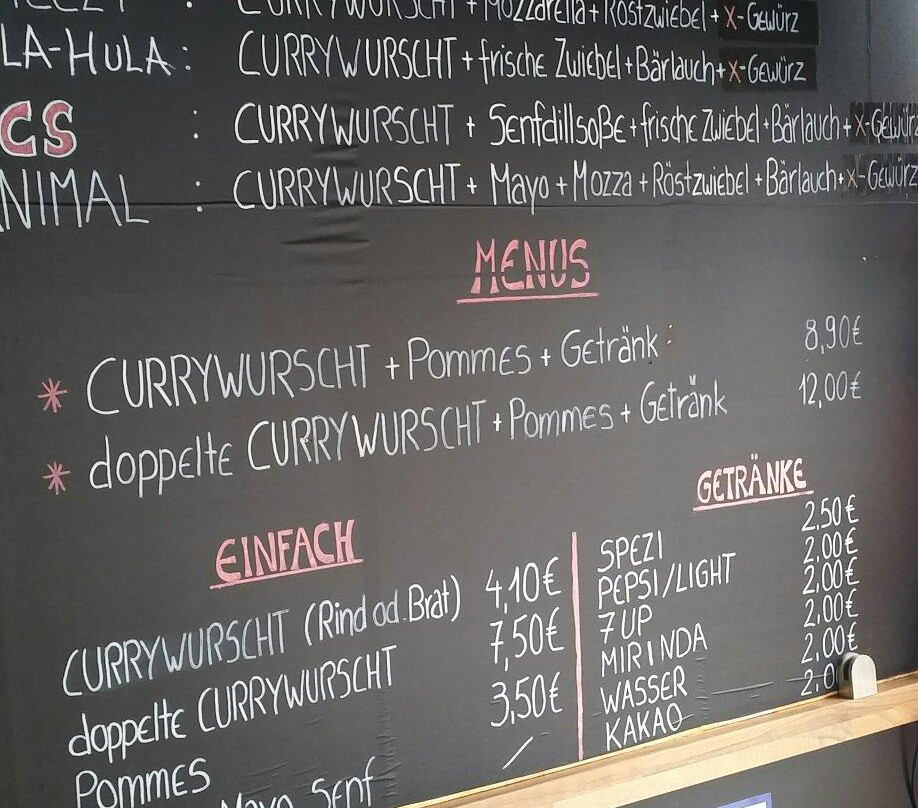 CURRYWURSCHT + Mozzarella + Röstzwiebel + X-Gewürz
LA-HULA: CURRYWURSCHT + frische Zwiebel + Bärlauch + X-Gewürz
CS : CURRYWURSCHT + Senfdillsoße + frische Zwiebel + Bärlauch + X-Gewürz
NIMAL : CURRYWURSCHT + Mayo + Mozza + Röstzwiebel + Bärlauch + X-Gewürz
MENUS
* CURRYWURSCHT + Pommes + Getränk : 8,90€
* doppelte CURRYWURSCHT + Pommes + Getränk 12,00€
EINFACH
CURRYWURSCHT (Rind od. Brat) 4,10€
doppelte CURRYWURSCHT 7,50€
Pommes 3,50€
Mayo Senf /
GETRÄNKE
SPEZI 2,50€
PEPSI/LIGHT 2,00€
7UP 2,00€
MIRINDA 2,00€
WASSER 2,00€
KAKAO 2,0